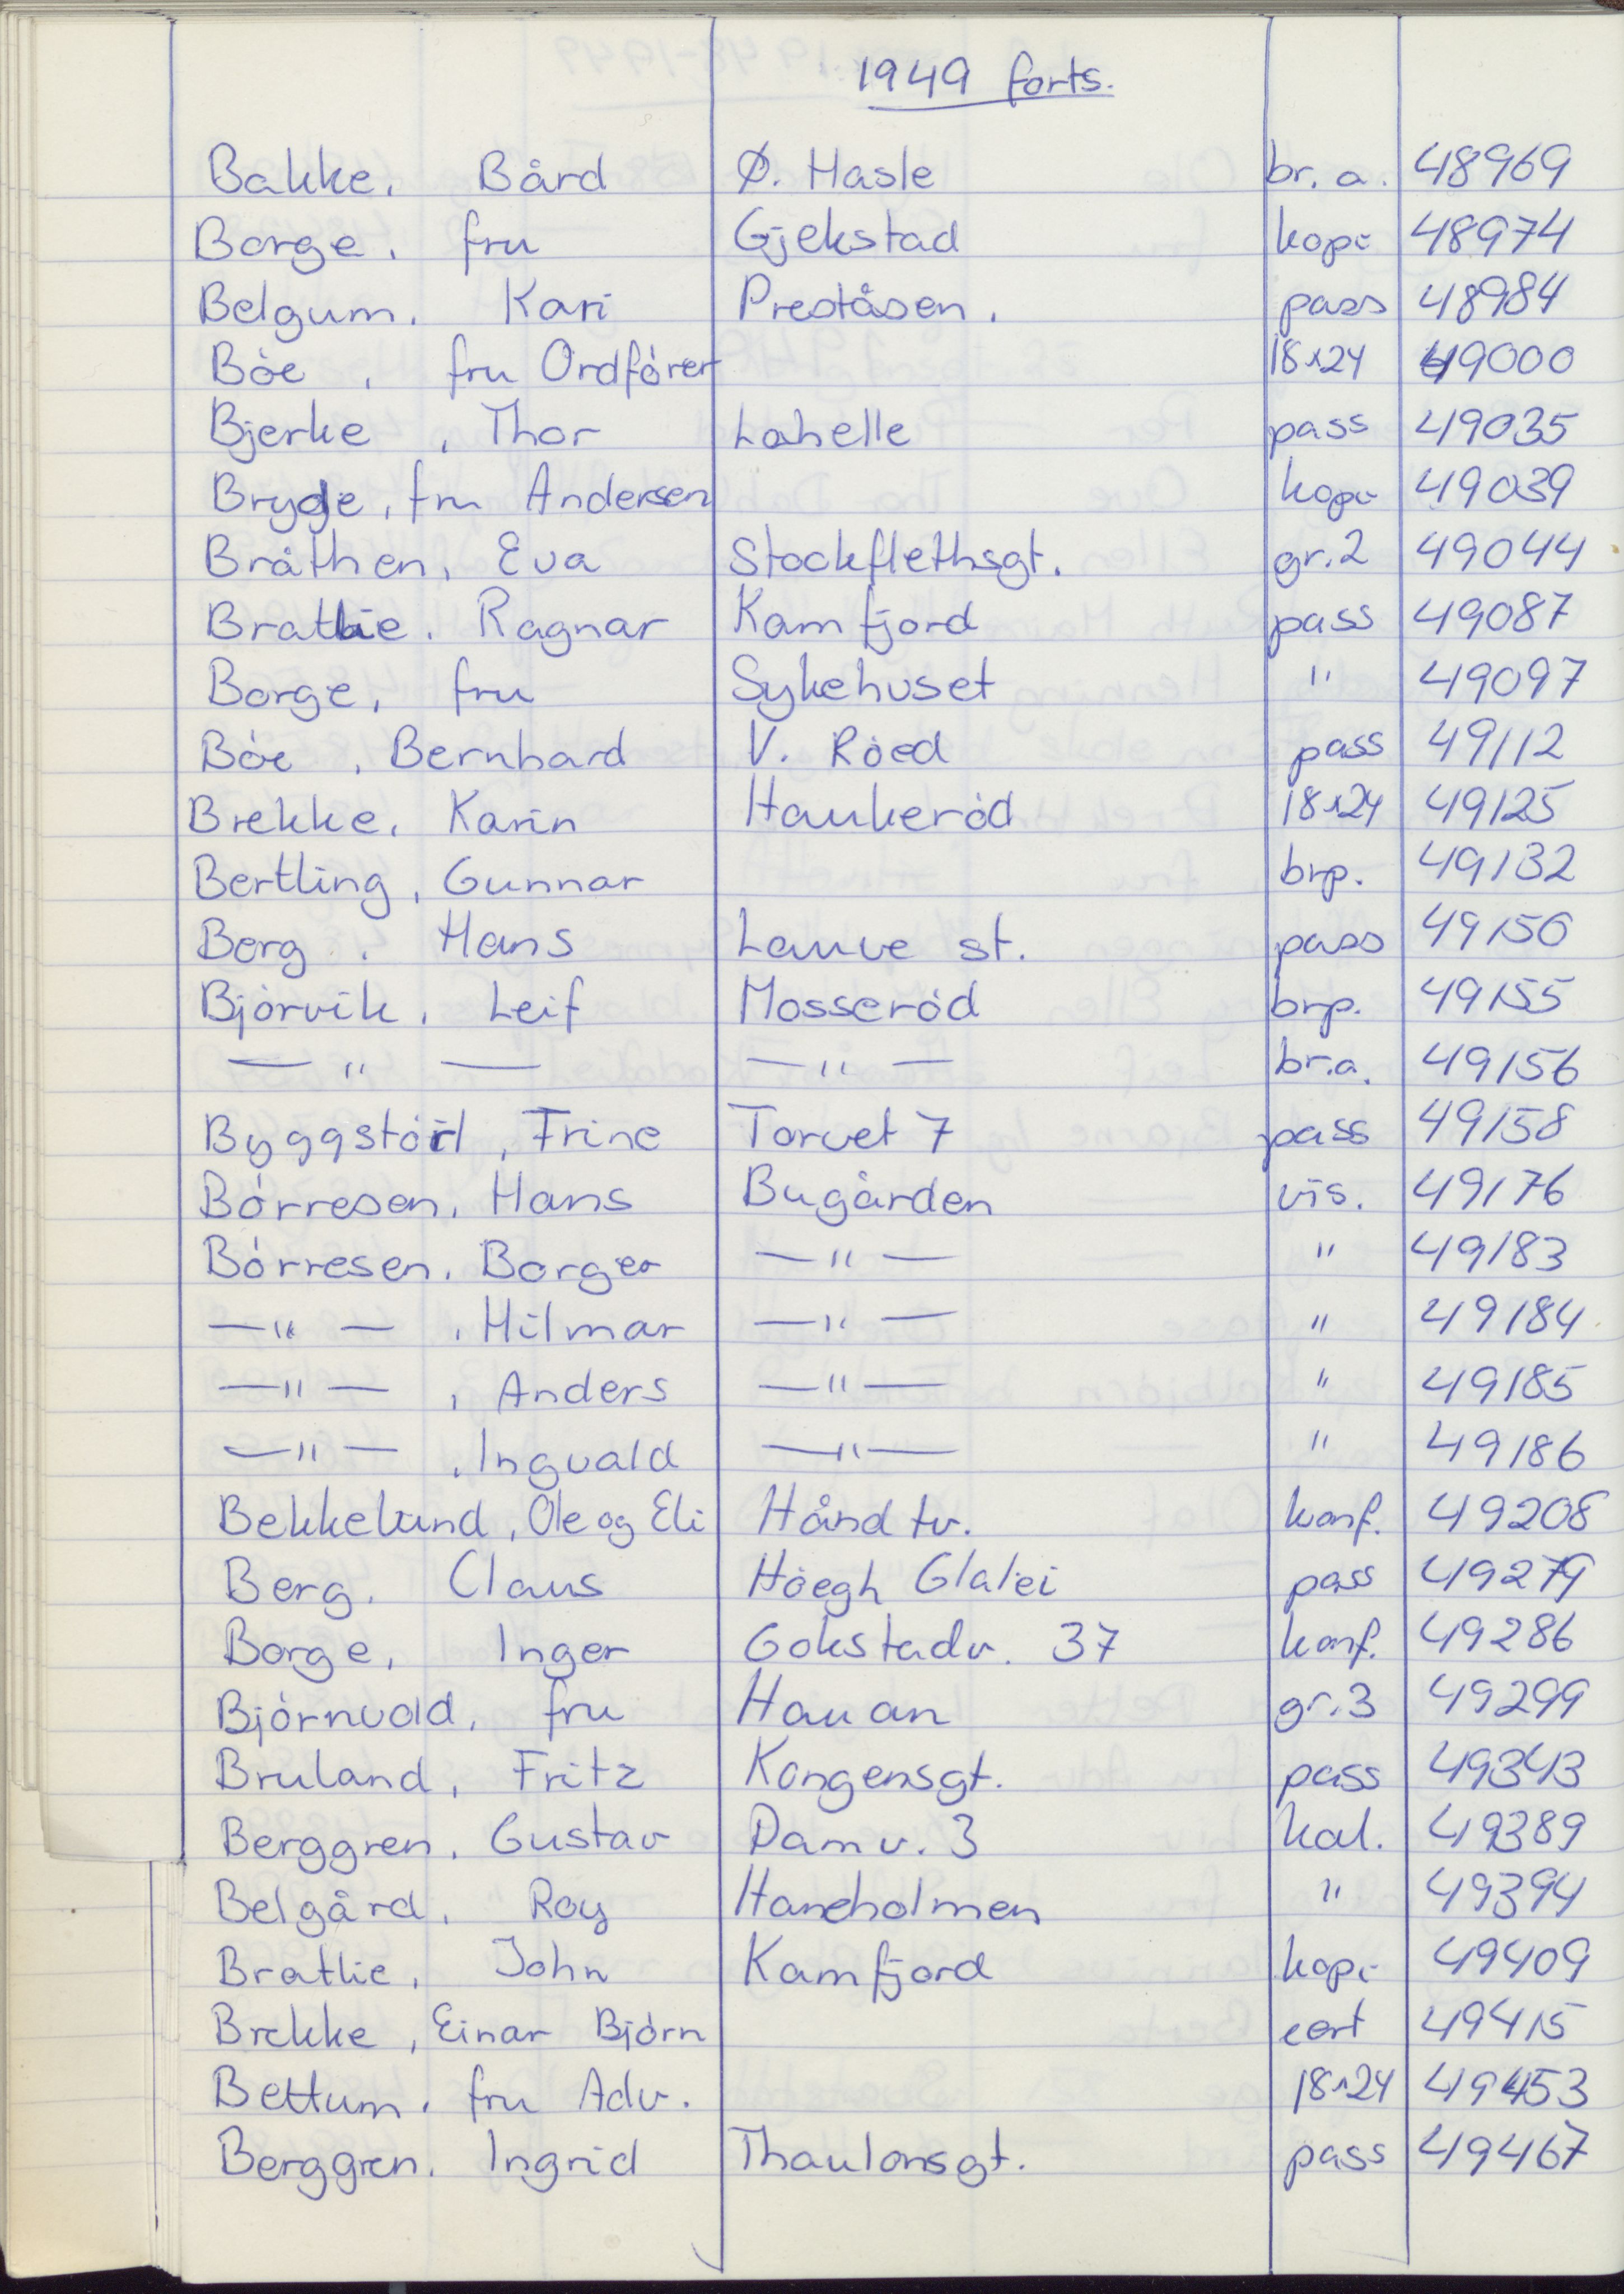 1949 forts.
Bakke, Bård Ø. Hasle br. a. 48969
Borge, fru Gjekstad kopi 48974
Belgum, Kari Preståsen. pass 48984
Bóe, fru Ordfórer 18x24 49000
Bjerke, Thor Lahelle pass 49035
Brydje, fru Andersen kopi 49039
Bråthen, Eva Stockflethsgt. gr. 2 49044
Bratlie, Ragnar Kamfjord pass 49087
Borge, fru Sykehuset " 49097
Bóe, Bernhard V. Róed pass 49112
Brekke, Karin Haukeród 18x24 49125
Bertling, Gunnar brp. 49132
Borg, Hans Lauve st. pass 49150
Bjórvik, Leif Mosseród brp. 49155
— " — — " — br.a. 49156
Byggstóil, Trine Torvet 7 pass 49158
Bórresen, Hans Bugården vis. 49176
Bórresen, Borger — " — " 49183
— " —, Hilmar — " — " 49184
— " —, Anders — " — " 49185
— " —, Ingvald — " — " 49186
Bekkelund, Ole og Eli Håndtv. konf. 49208
Berg, Claus Hóegh Glalei pass 49279
Borge, Inger Gokstadv. 37 konf. 49286
Bjórnvold, fru Hauan gr. 3 49299
Bruland, Fritz Kongensgt. pass 49343
Berggren, Gustav Damv. 3 kal. 49389
Belgård, Roy Haneholmen " 49394
Bratlie, John Kamfjord kopi 49409
Brekke, Einar Bjórn cert 49415
Bettum, fru Adv. 18x24 49453
Berggren, Ingrid Thaulowsgt. pass 49467